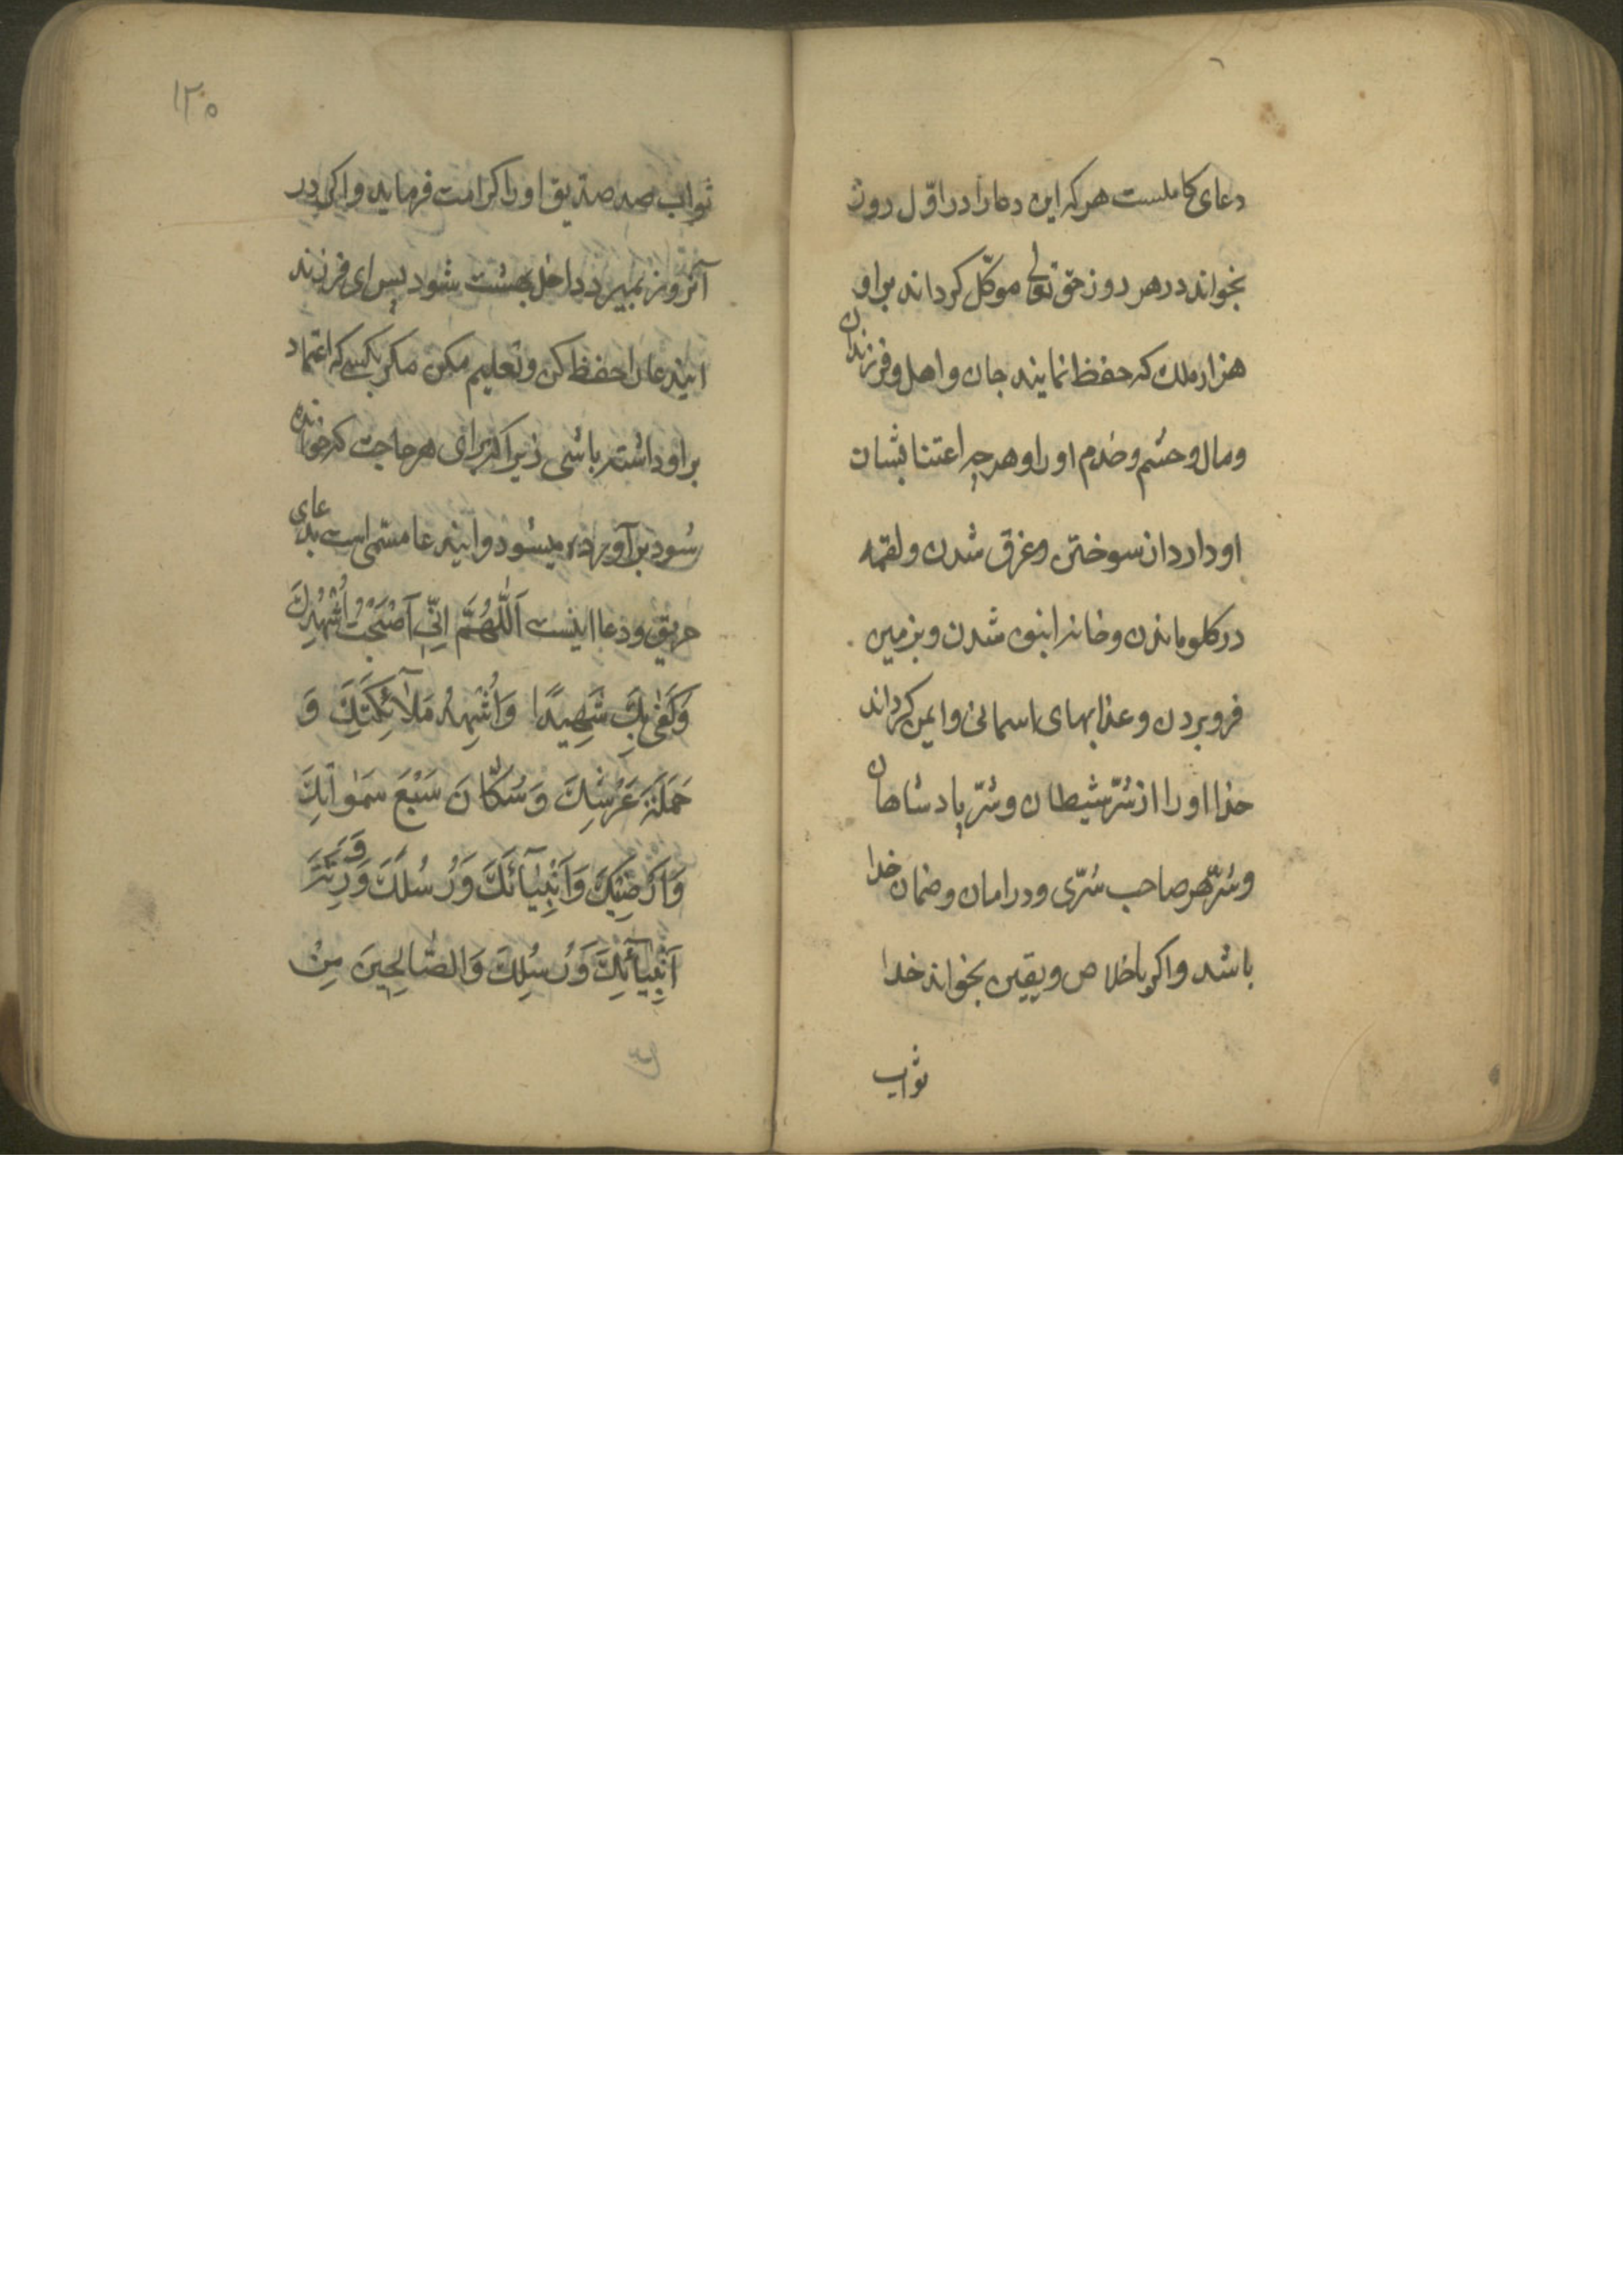 دعای کاملست هرکه این دعا را در اوّل روز
بخواند در هر روز حق تعالی موکّل کرداند براو
هزار ملک که حفظ نمایند جان و اهل و فرزندان
ومال وحشم وخدم او را وهرچه اعتنا بشان
او دارد از سوختن وغرق شدن ولقمه
در کلو ماندن وخانه رابنون شدن وبزمین
فرو بردن وعذابهای اسمانی وایمن کرداند
خدا اورا از شرّ شیطان وشرّ پادشاهان
وشرّ هر صاحب شرّی ودر امان وضمان خدا
باشد واکر باخلاص ویقین بخواند خدا
ثواب
۱۲۵
ثواب صد صدیق اورا کرامت فرماید واکر در
آنروز بمیرد داخل بهشت شود پس ای فرزند
ایندعا را حفظ کن وتعلیم مکن مکر بکسی که اعتماد
براو داشته باشی زیرا که برای هر حاجت که خوانده
شود برآورده میشود وایندعا مسمی است بدعای
حریق ودعا اینست اَللّٰهُمَّ اِنّی اَصْبَحْتُ اُشْهِدُكَ
وَكَفٰی بِكَ شَهِیدًا وَاُشْهِدُ مَلآئِكَتَكَ وَ
حَمَلَةَ عَرْشِكَ وَسُكّٰانَ سَبْعَ سَمٰوٰاتِكَ
وَاَرَضِیكَ وَاَنْبِیٰآئَكَ وَرُسُلَكَ وَوَرَثَةَ
اَنْبِیٰآئِكَ وَرُسُلِكَ وَالصّٰالِحِینَ مِنْ